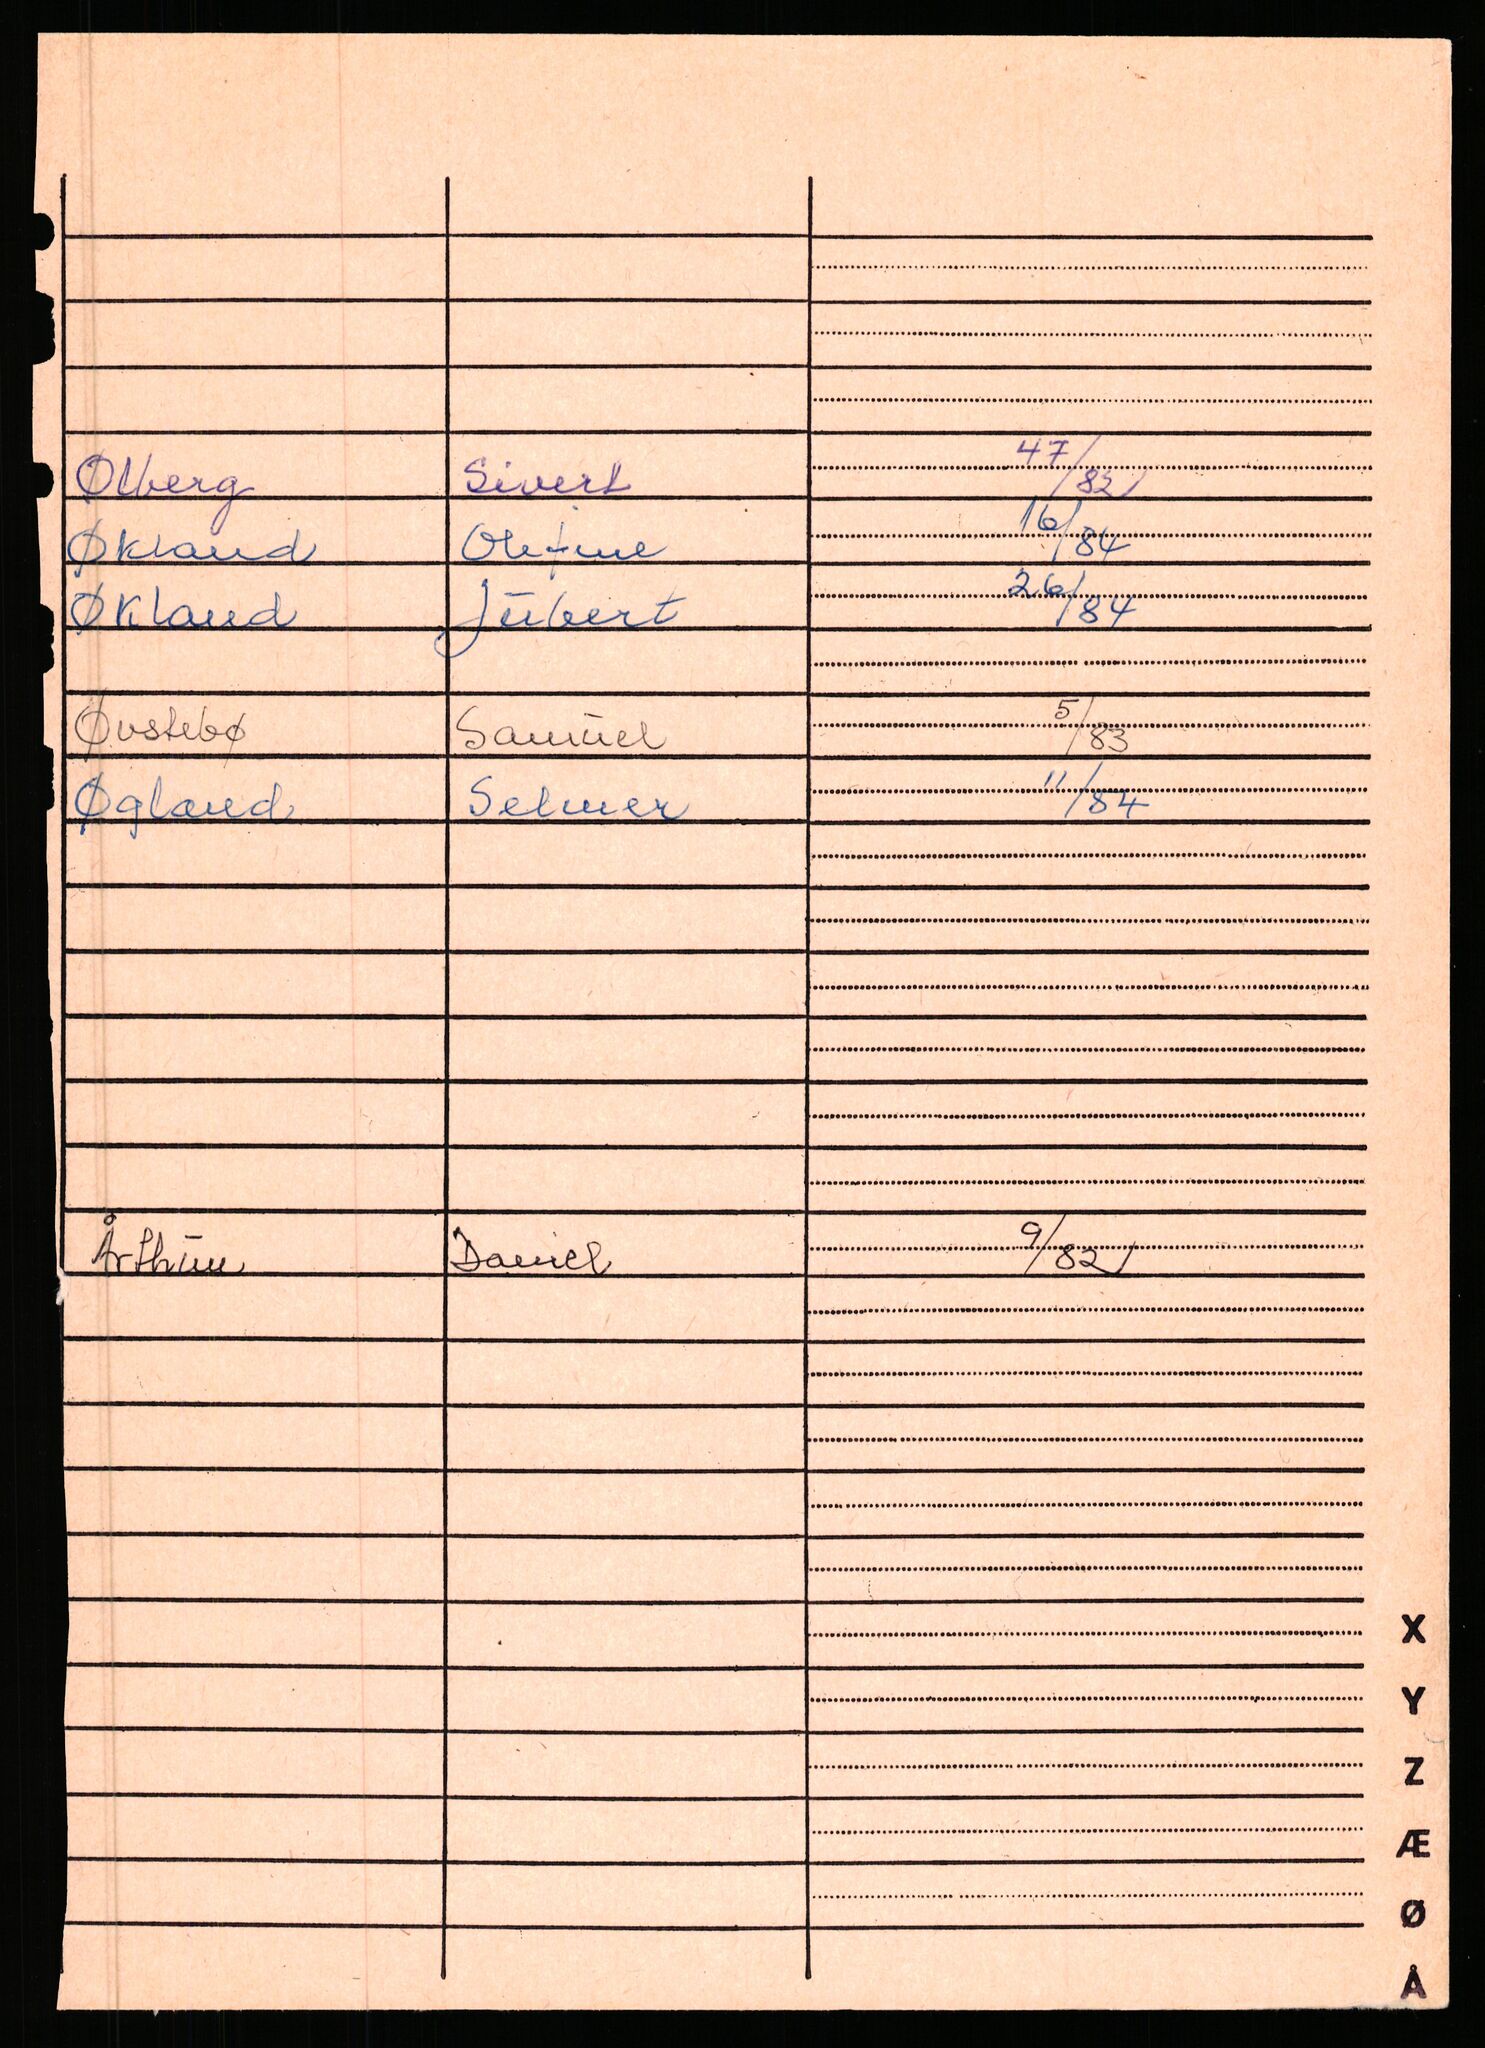 Ølberg Sivert 47/82
Økland Olefine 16/84
Økland Jübert 26/84
Øvstebø Samüel 5/83
Øgland Selmer 11/84
Årthün Daniel 9/82
X
Y
Z
Æ
Ø
Å